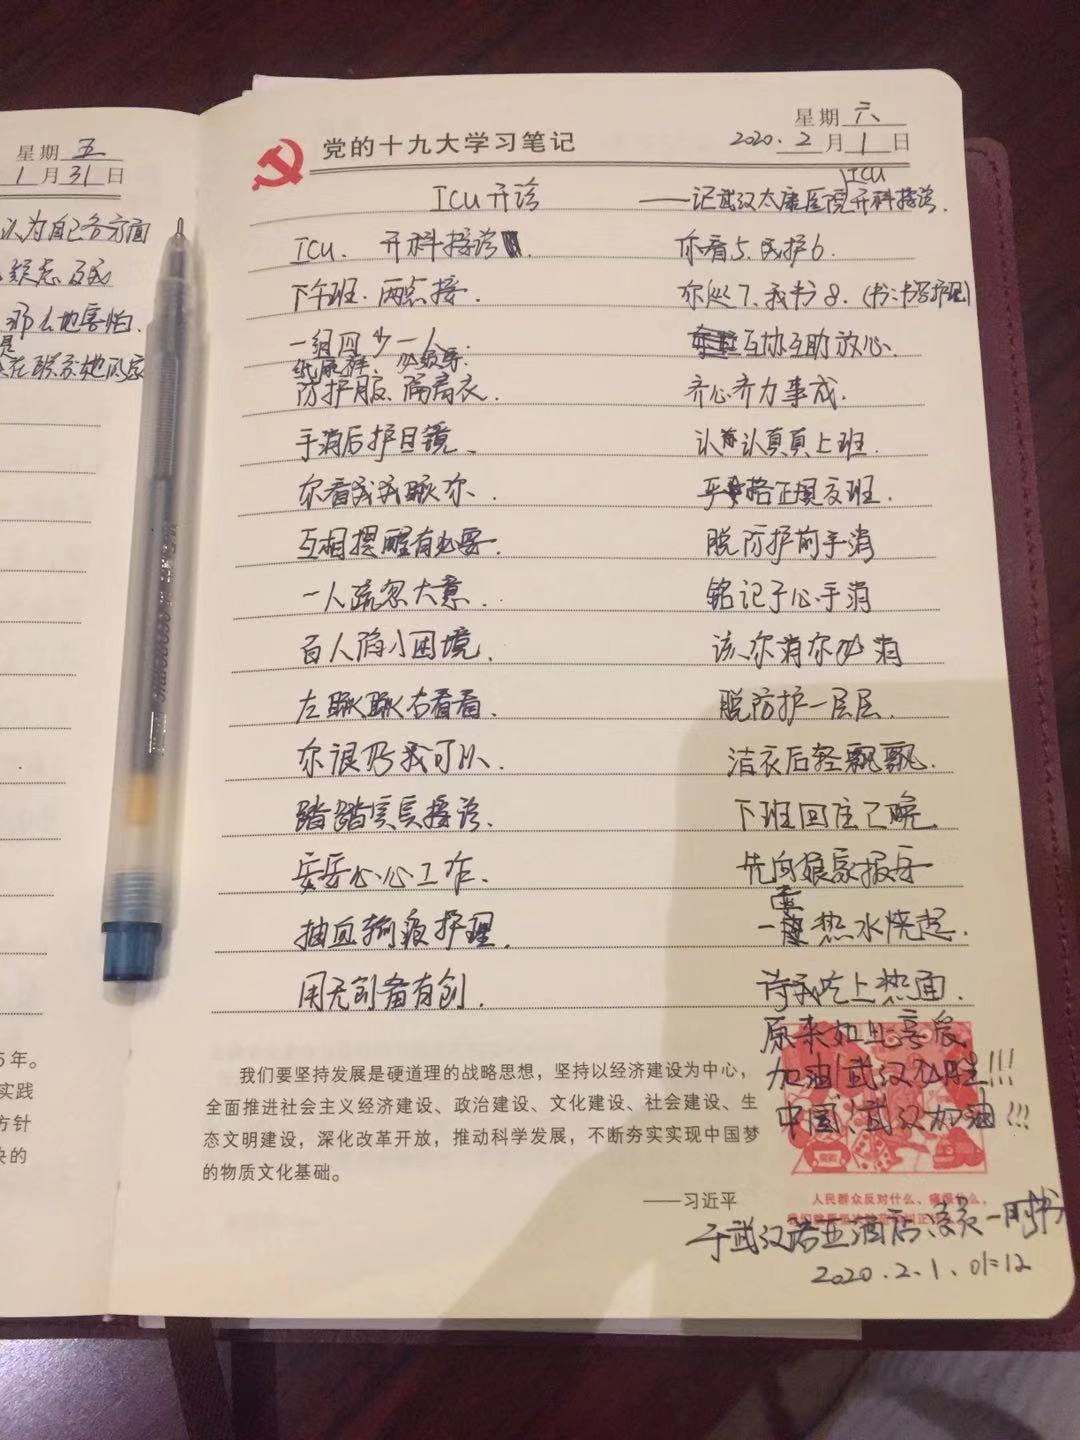 星期 五
1 月 31 日
认为自己各方面
那么地害怕.
是
在联系她的家
5年。
实践
方针
央的
星期 六
2020. 2 月 1 日
党的十九大学习笔记
ICU 开诊
ICU
——记武汉太康医院开科接诊.
ICU. 开科接诊
下午班. 两点接.
一组四少一人.
纸尿裤. 必须穿.
防护服、隔离衣.
手消后护目镜、
你看我我瞅你.
互相提醒有必要.
一人疏忽大意.
百人陷小困境.
左瞅瞅右看看.
你很好我可以.
踏踏实实接诊.
安安心心工作.
抽血输液护理.
用无创备有创.
你看5. 我护6.
你处7. 我书8. (书:书写护理)
互协互助放心.
齐心齐力事成.
认认真真上班.
平格正规交班.
脱防护前手消
铭记于心手消
该你消你必消
脱防护一层层.
洁衣后轻飘飘.
下班回住已晚.
先向娘家报平
壶
一 热水烧起.
待我吃上热面.
原来如此享受
加油!武汉必胜!!!
中国、武汉加油!!!
我们要坚持发展是硬道理的战略思想，坚持以经济建设为中心，
全面推进社会主义经济建设、政治建设、文化建设、社会建设、生
态文明建设，深化改革开放，推动科学发展，不断夯实实现中国梦
的物质文化基础。
——习近平
人民群众反对什么、痛恨什么，
于武汉诺亚酒店凌晨一时书
2020.2.1、01:12